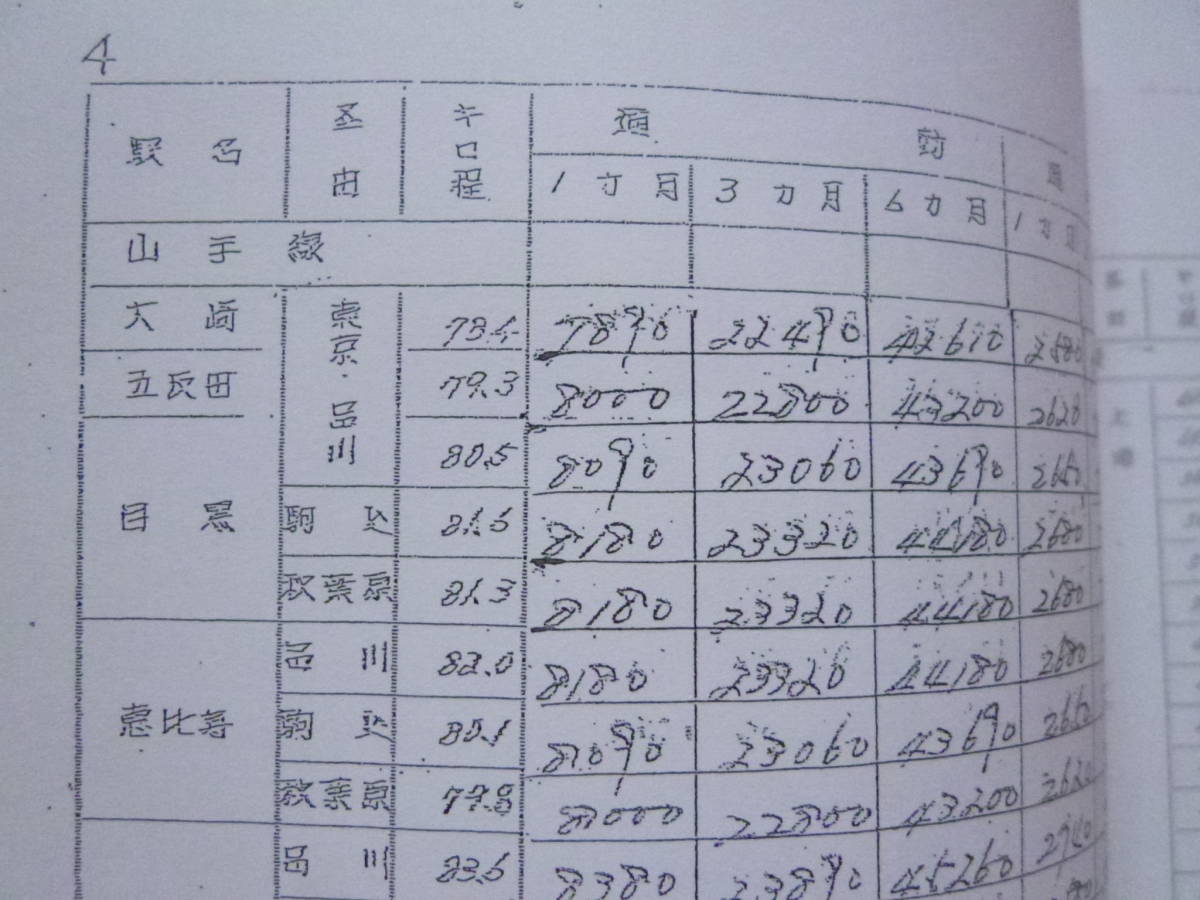 4
駅名 経由 キロ程 通勤 通
1カ月 3カ月 6カ月 1カ月
山手線
大崎 東京・品川 78.4 7890 22490 42610 2580
五反田 79.3 8000 22800 43200 2620
目黒 80.5 8090 23060 43690 2650
駒込 81.5 8180 23320 44180 2680
秋葉原 81.3 8180 23320 44180 2680
恵比寿 品川 82.0 8180 23320 44180 2680
駒込 80.1 8090 23060 43690 2650
秋葉原 79.8 8000 22800 43200 2620
品川 83.5 8380 23890 45260